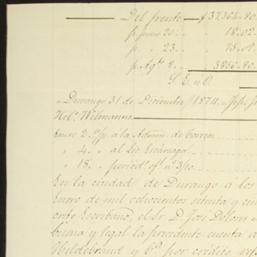 Del frente $ 37,364.80.
p. Junio 20.. " 18.02
p. " 23.. " 75.01.
p. Agto 8.. " 3850.80.
S. E. u O.
Durango 31 de Diciembre / 1874.
Hel. Wilmanns
Enero 2. p. a la Admon. de Correos
" 4. " al Lic.
" 18. " period. of. n° 3/10.
En la ciudad de Durango a los
Enero de mil ochocientos setenta y cin
crito Escribano, el Sr. D. José
buena y legal la precedente cuenta
Hildebrand y Ca. por crédito